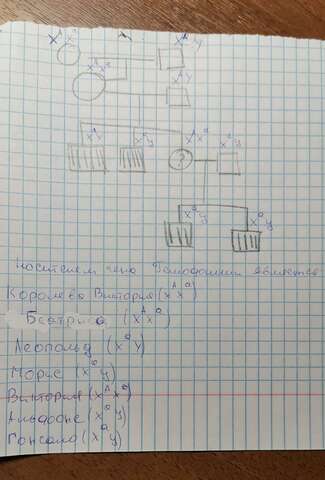 X^A X^a X^A y
X^A X^a X^A y
X^a y X^a y X^A X^a X^A y
?
X^a y X^a y
носителем гена Гемофилии является
Королева Виктория (X^A X^a)
Беатриса (X^A X^a)
Леопольд (X^a Y)
Морис (X^a y)
Виктория (X^A X^a)
Альфонс (X^a y)
Гонсало (X^a y)